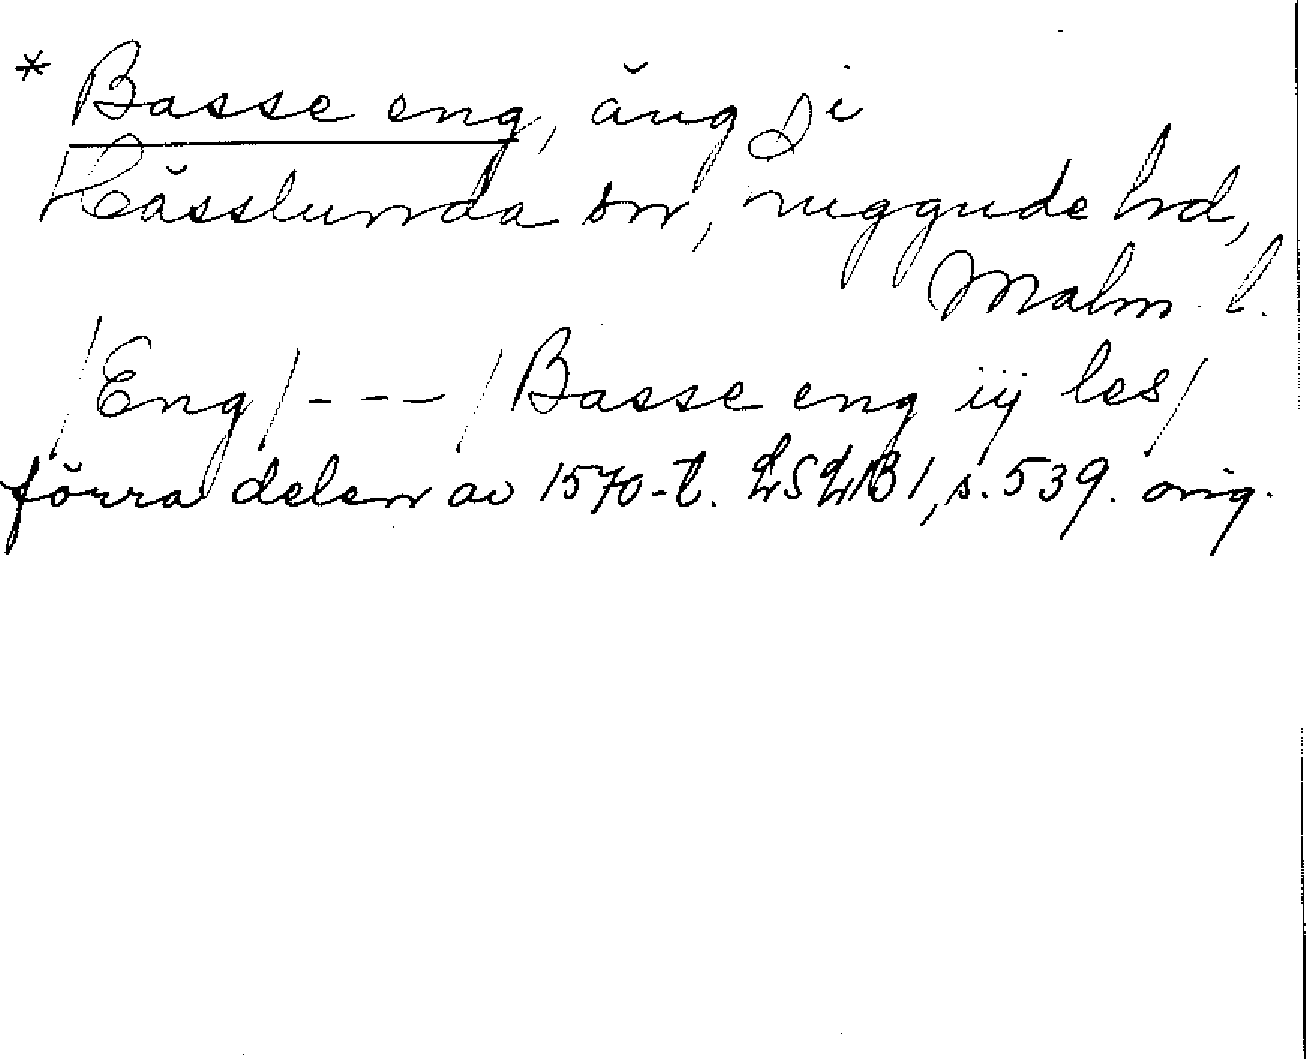 * Basse eng, äng i
Hässlunda sn, Luggude hd,
Malm. l.
/Eng/ - - - / Basse eng iij les/
förra delen av 1570-t. LSLB1, s. 539. orig.